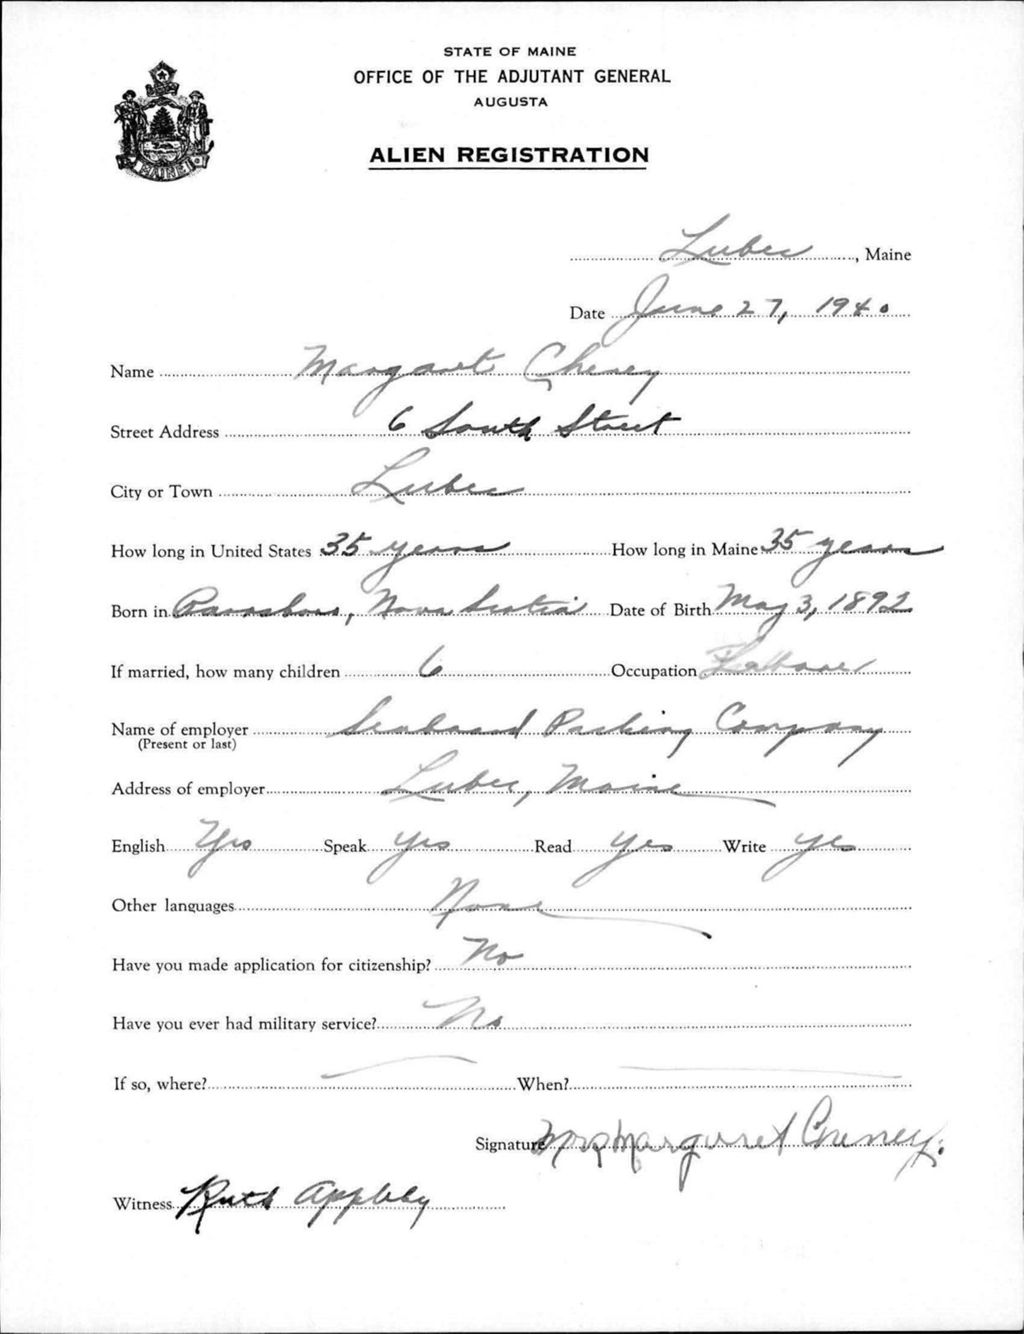 STATE OF MAINE
OFFICE OF THE ADJUTANT GENERAL
AUGUSTA
ALIEN REGISTRATION
MAINE
Lubec, Maine
Date June 27, 1940
Name Margaret Cheney
Street Address 6 South Street
City or Town Lubec
How long in United States 35 years How long in Maine 35 years
Born in Parrsboro, Nova Scotia Date of Birth May 3, 1892
If married, how many children 6 Occupation Laborer
Name of employer Seaboard Packing Company
(Present or last)
Address of employer Lubec, Maine
English Yes Speak Yes Read Yes Write Yes
Other languages None
Have you made application for citizenship? No
Have you ever had military service? No
If so, where? When?
Signature Mrs Margaret Cheney.
Witness Ruth Appleby